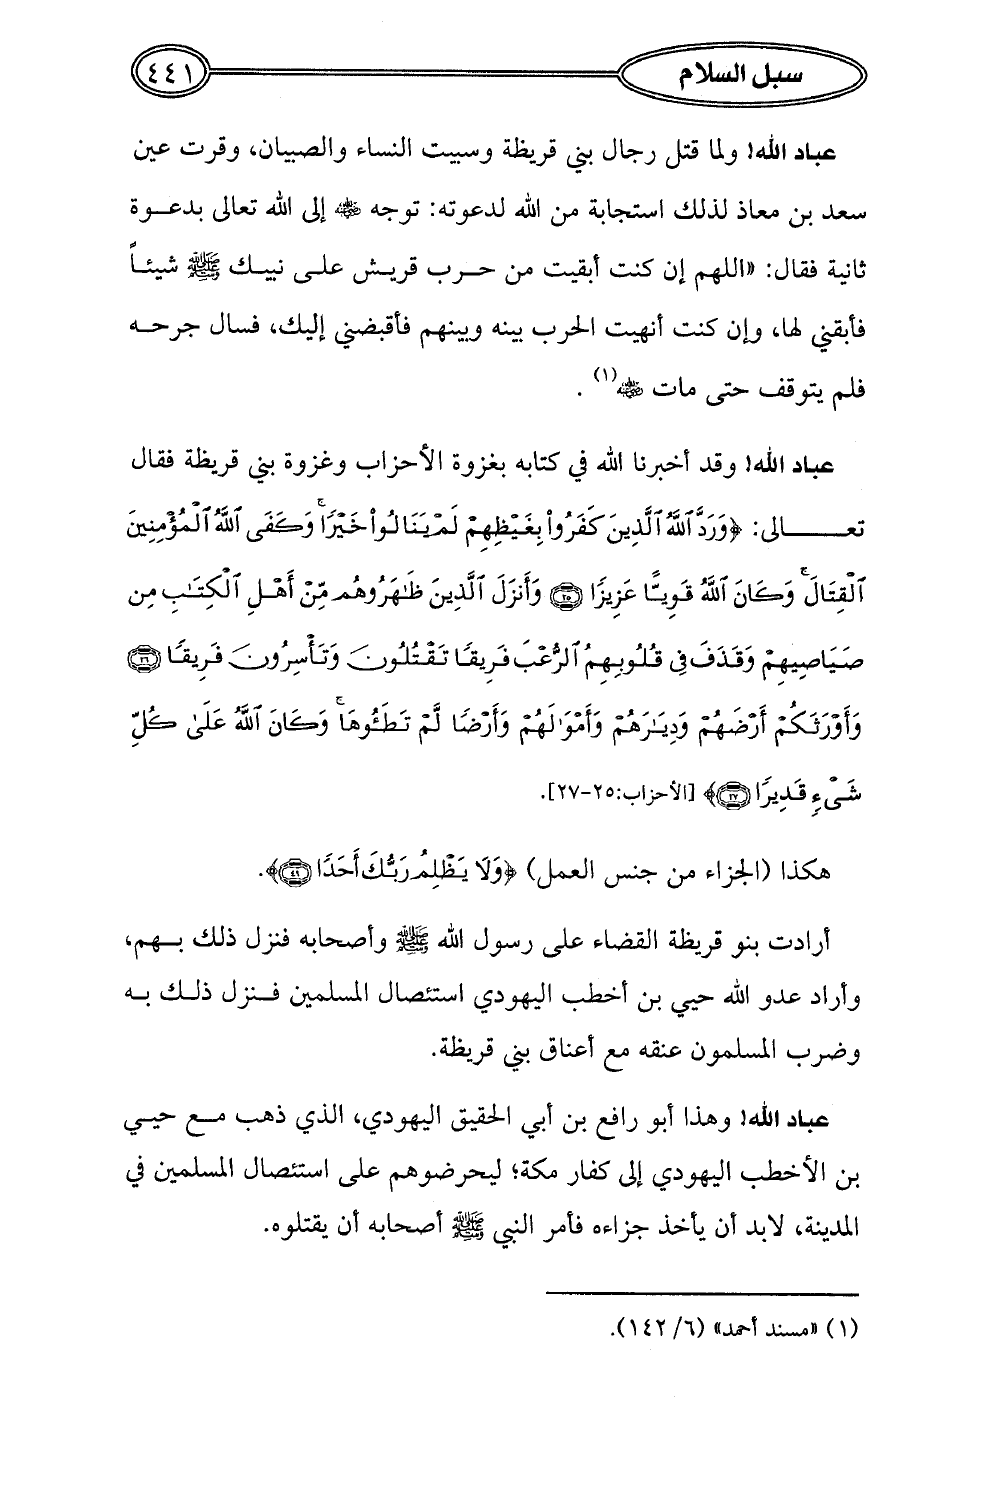 سبل السلام
٤٤١
عباد الله! ولما قتل رجال بني قريظة وسبيت النساء والصبيان، وقرت عين
سعد بن معاذ لذلك استجابة من الله لدعوته: توجه ﵁ إلى الله تعالى بدعـوة
ثانية فقال: «اللهم إن كنت أبقيت من حـرب قريـش علـى نبيـك ﷺ شيئـاً
فأبقني لها، وإن كنت أنهيت الحرب بينه وبينهم فأقبضني إليك، فسال جرحـه
فلم يتوقف حتى مات ﵁(١) .
عباد الله! وقد أخبرنا الله في كتابه بغزوة الأحزاب وغزوة بني قريظة فقال
تعـــــالى: ﴿وَرَدَّ ٱللَّهُ ٱلَّذِينَ كَفَرُواْ بِغَيْظِهِمْ لَمْ يَنَالُواْ خَيْرًاۚ وَكَفَى ٱللَّهُ ٱلْمُؤْمِنِينَ
ٱلْقِتَالَۚ وَكَانَ ٱللَّهُ قَوِيًّا عَزِيزًا ۝٢٥ وَأَنزَلَ ٱلَّذِينَ ظَٰهَرُوهُم مِّنْ أَهْلِ ٱلْكِتَٰبِ مِن
صَيَاصِيهِمْ وَقَذَفَ فِي قُلُوبِهِمُ ٱلرُّعْبَ فَرِيقًا تَقْتُلُونَ وَتَأْسِرُونَ فَرِيقًا ۝٢٦
وَأَوْرَثَكُمْ أَرْضَهُمْ وَدِيَٰرَهُمْ وَأَمْوَٰلَهُمْ وَأَرْضًا لَّمْ تَطَـُٔوهَاۚ وَكَانَ ٱللَّهُ عَلَىٰ كُلِّ
شَىْءٍ قَدِيرًا ۝٢٧﴾ [الأحزاب:٢٥-٢٧].
هكذا (الجزاء من جنس العمل) ﴿وَلَا يَظْلِمُ رَبُّكَ أَحَدًا ۝٤٩﴾.
أرادت بنو قريظة القضاء على رسول الله ﷺ وأصحابه فنزل ذلك بـهم،
وأراد عدو الله حيي بن أخطب اليهودي استئصال المسلمين فـنزل ذلـك بـه
وضرب المسلمون عنقه مع أعناق بني قريظة.
عباد الله! وهذا أبو رافع بن أبي الحقيق اليهودي، الذي ذهب مـع حيـي
بن الأخطب اليهودي إلى كفار مكة؛ ليحرضوهم على استئصال المسلمين في
المدينة، لابد أن يأخذ جزاءه فأمر النبي ﷺ أصحابه أن يقتلوه.
(١) «مسند أحمد» (٦/ ١٤٢).